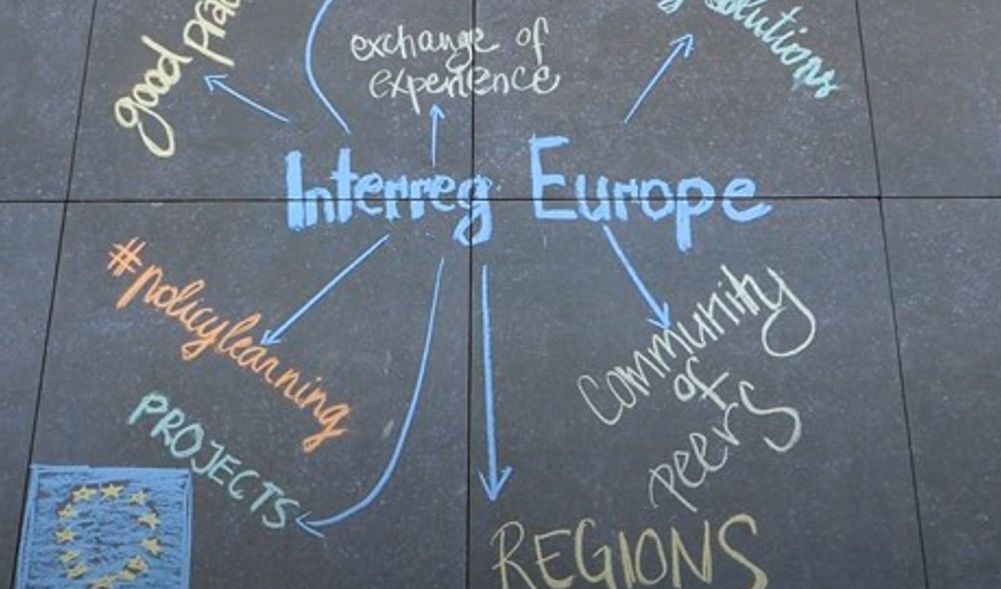 good
exchange of
experience
solutions
Interreg Europe
#policylearning
Community
of
peers
PROJECTS
REGIONS